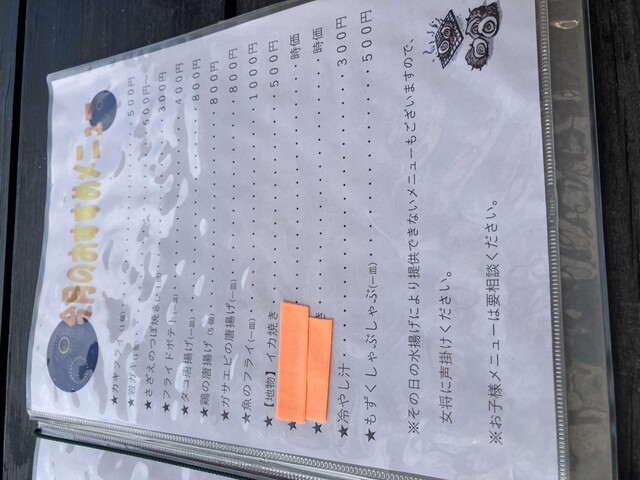 今月のおすすめメニュー
★カキフライ(1個)・・・500円
★岩ガキ・・・500円～
★さざえのつぼ焼き・・・300円
★フライドポテト(一皿)・・・400円
★タコ唐揚げ(一皿)・・・800円
★鶏の唐揚げ(5個)・・・800円
★ガサエビの唐揚げ(一皿)・・・800円
★魚のフライ(一皿)・・・1000円
★【地物】イカ焼き・・・500円
★・・・時価
★き・・・時価
★冷やし汁・・・300円
★もずくしゃぶしゃぶ(一皿)・・・500円
※その日の水揚げにより提供できないメニューもございますので、
女将に声掛けください。
※お子様メニューは要相談ください。